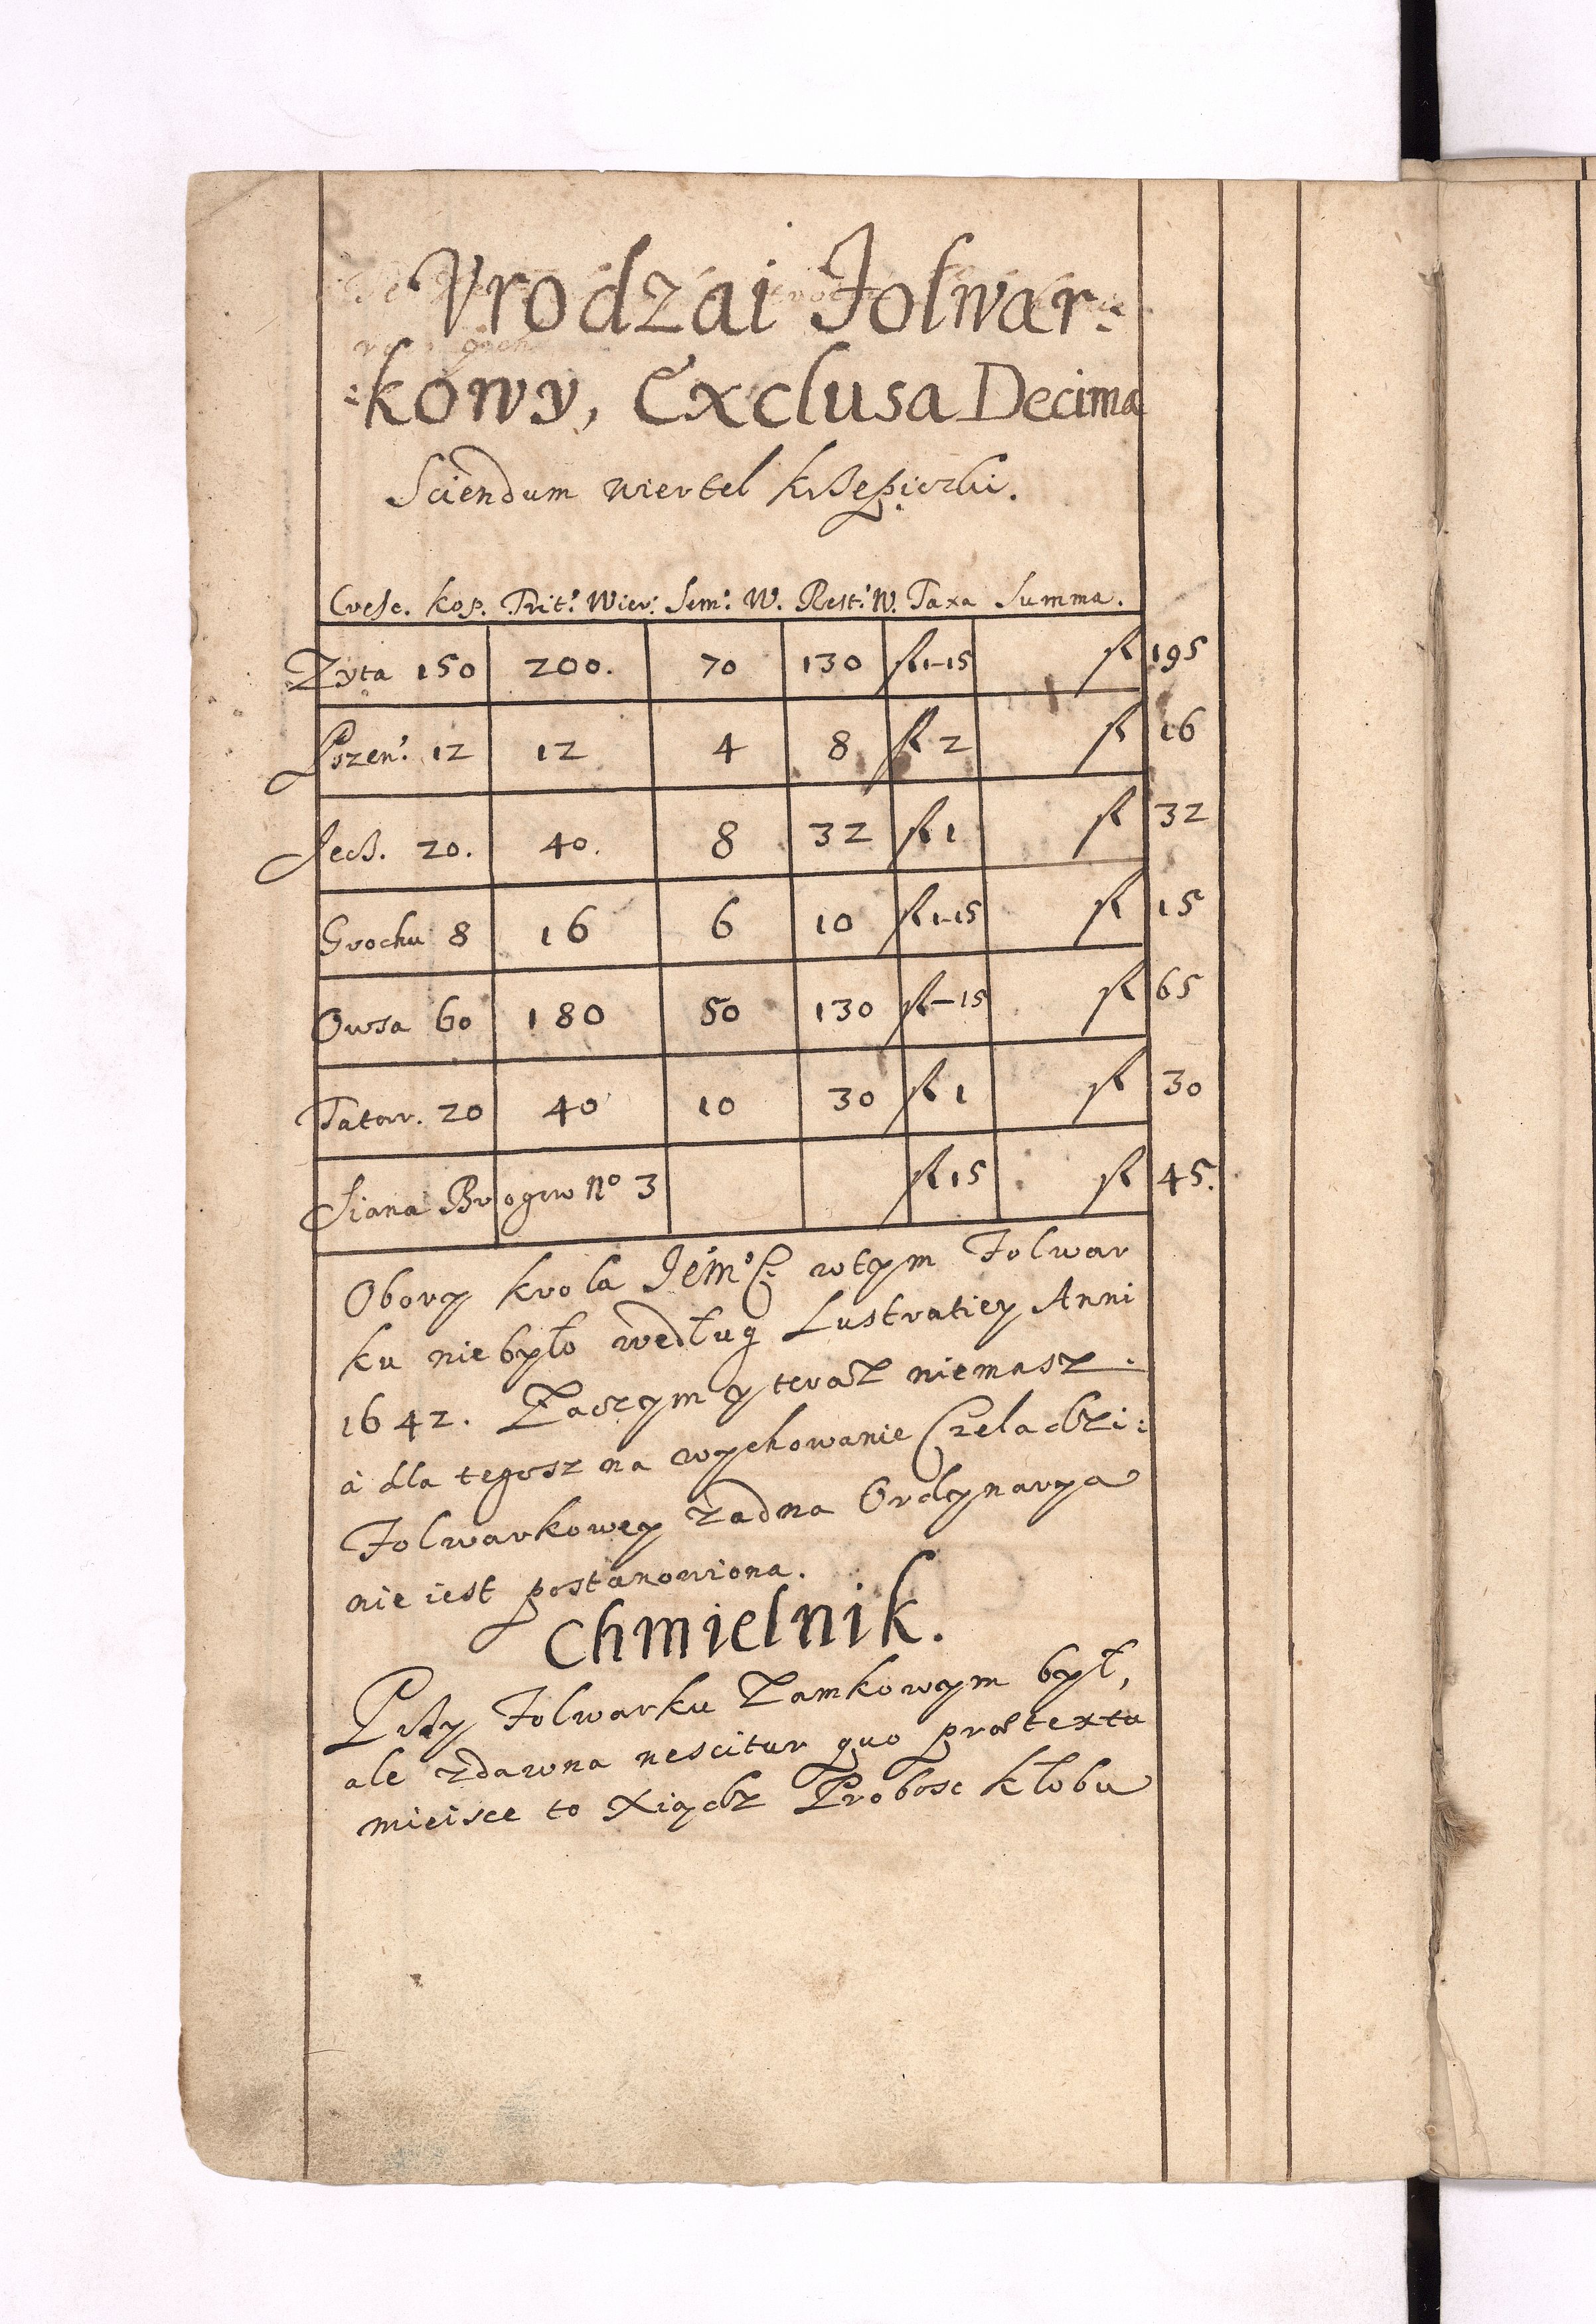 Vrodzai Folwar:
:kowy, Exclusa Decima
Sciendum wiertel krzepiczki.
Cresc. kop. Trit: Wier: Sem: W. Rest: W. Taxa Summa.
Zyta 150 200. 70 130 fl 1-15 fl 195
Pszen: 12 12 4 8 fl 2 fl 16
Jecz. 20. 40. 8 32 fl 1 fl 32
Grochu 8 16 6 10 fl 1-15 fl 15
Owsa 60 180 50 130 fl -15 fl 65
Tatar. 20 40 10 30 fl 1 fl 30
Siana Brogow No 3 fl 15 fl 45.
Obory krola Jem: wtym Folwar
ku niebyło według Lustratiey Anni
1642. Zaczym y teraz niemasz.
á dla tegosz na wychowanie Czeladzi:
Folwarkowey zadna Ordynarya
nie iest postanowiona.
Chmielnik.
Przy Folwarku Zamkowym był,
ale zdawna nescitur quo prætextu
mieisce to Xiądz Probosc kłobu